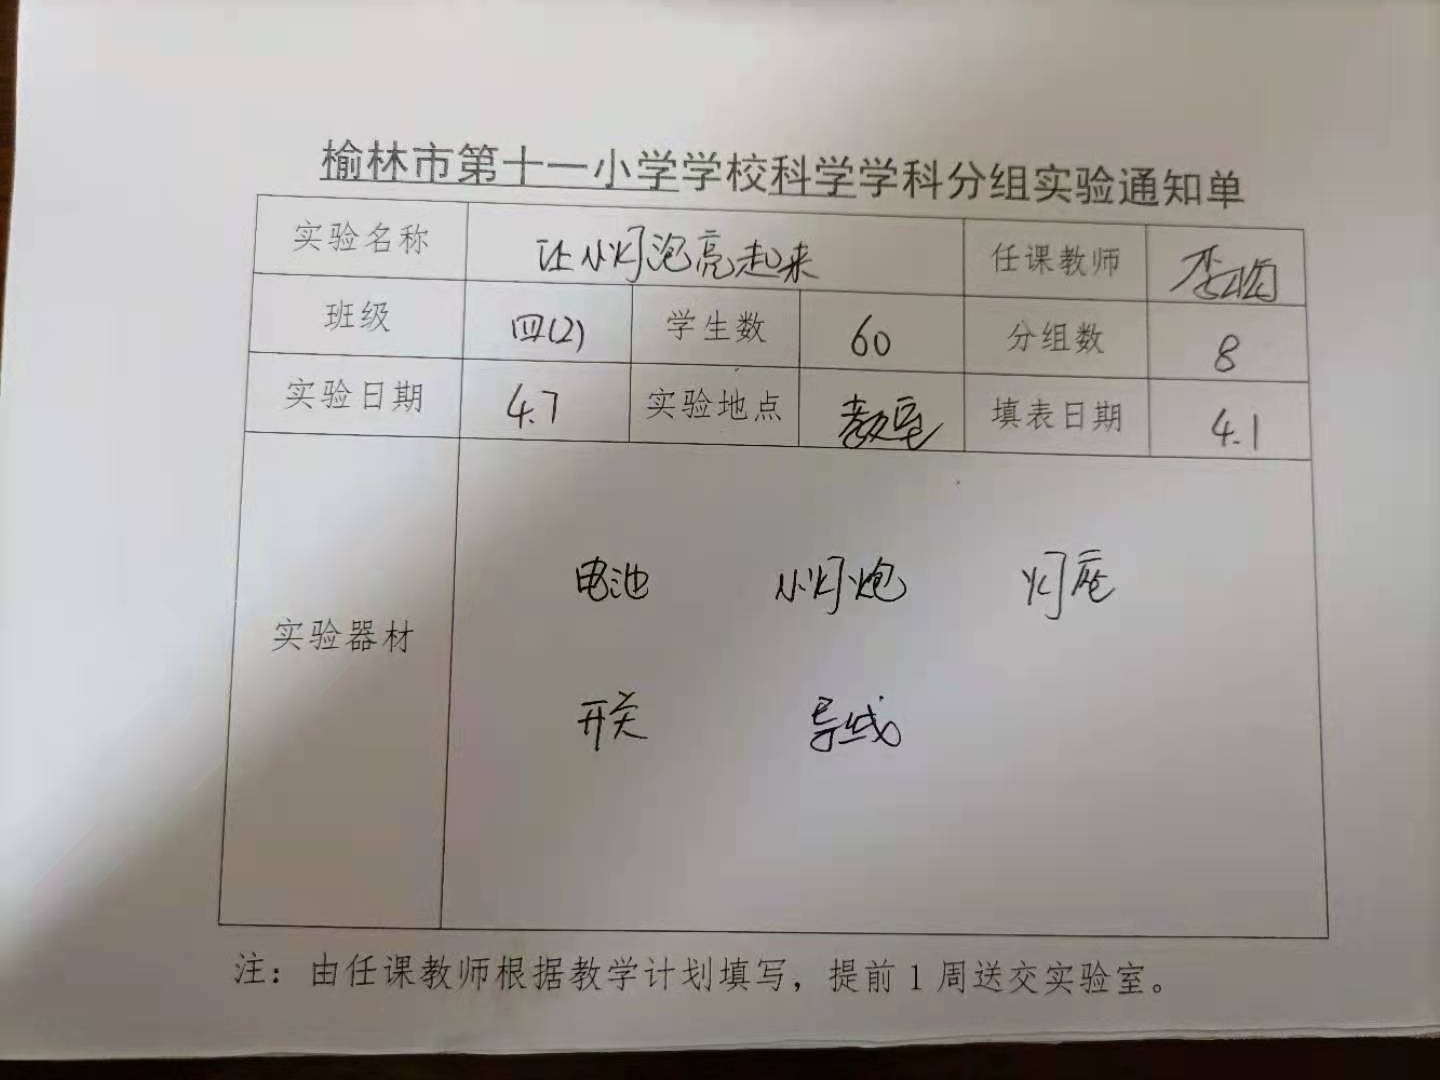 榆林市第十一小学学校科学学科分组实验通知单
实验名称 让小灯泡亮起来 任课教师 李
班级 四(2) 学生数 60 分组数 8
实验日期 4.7 实验地点 教室 填表日期 4.1
实验器材
电池 小灯炮 灯座
开关 导线
注：由任课教师根据教学计划填写，提前1周送交实验室。